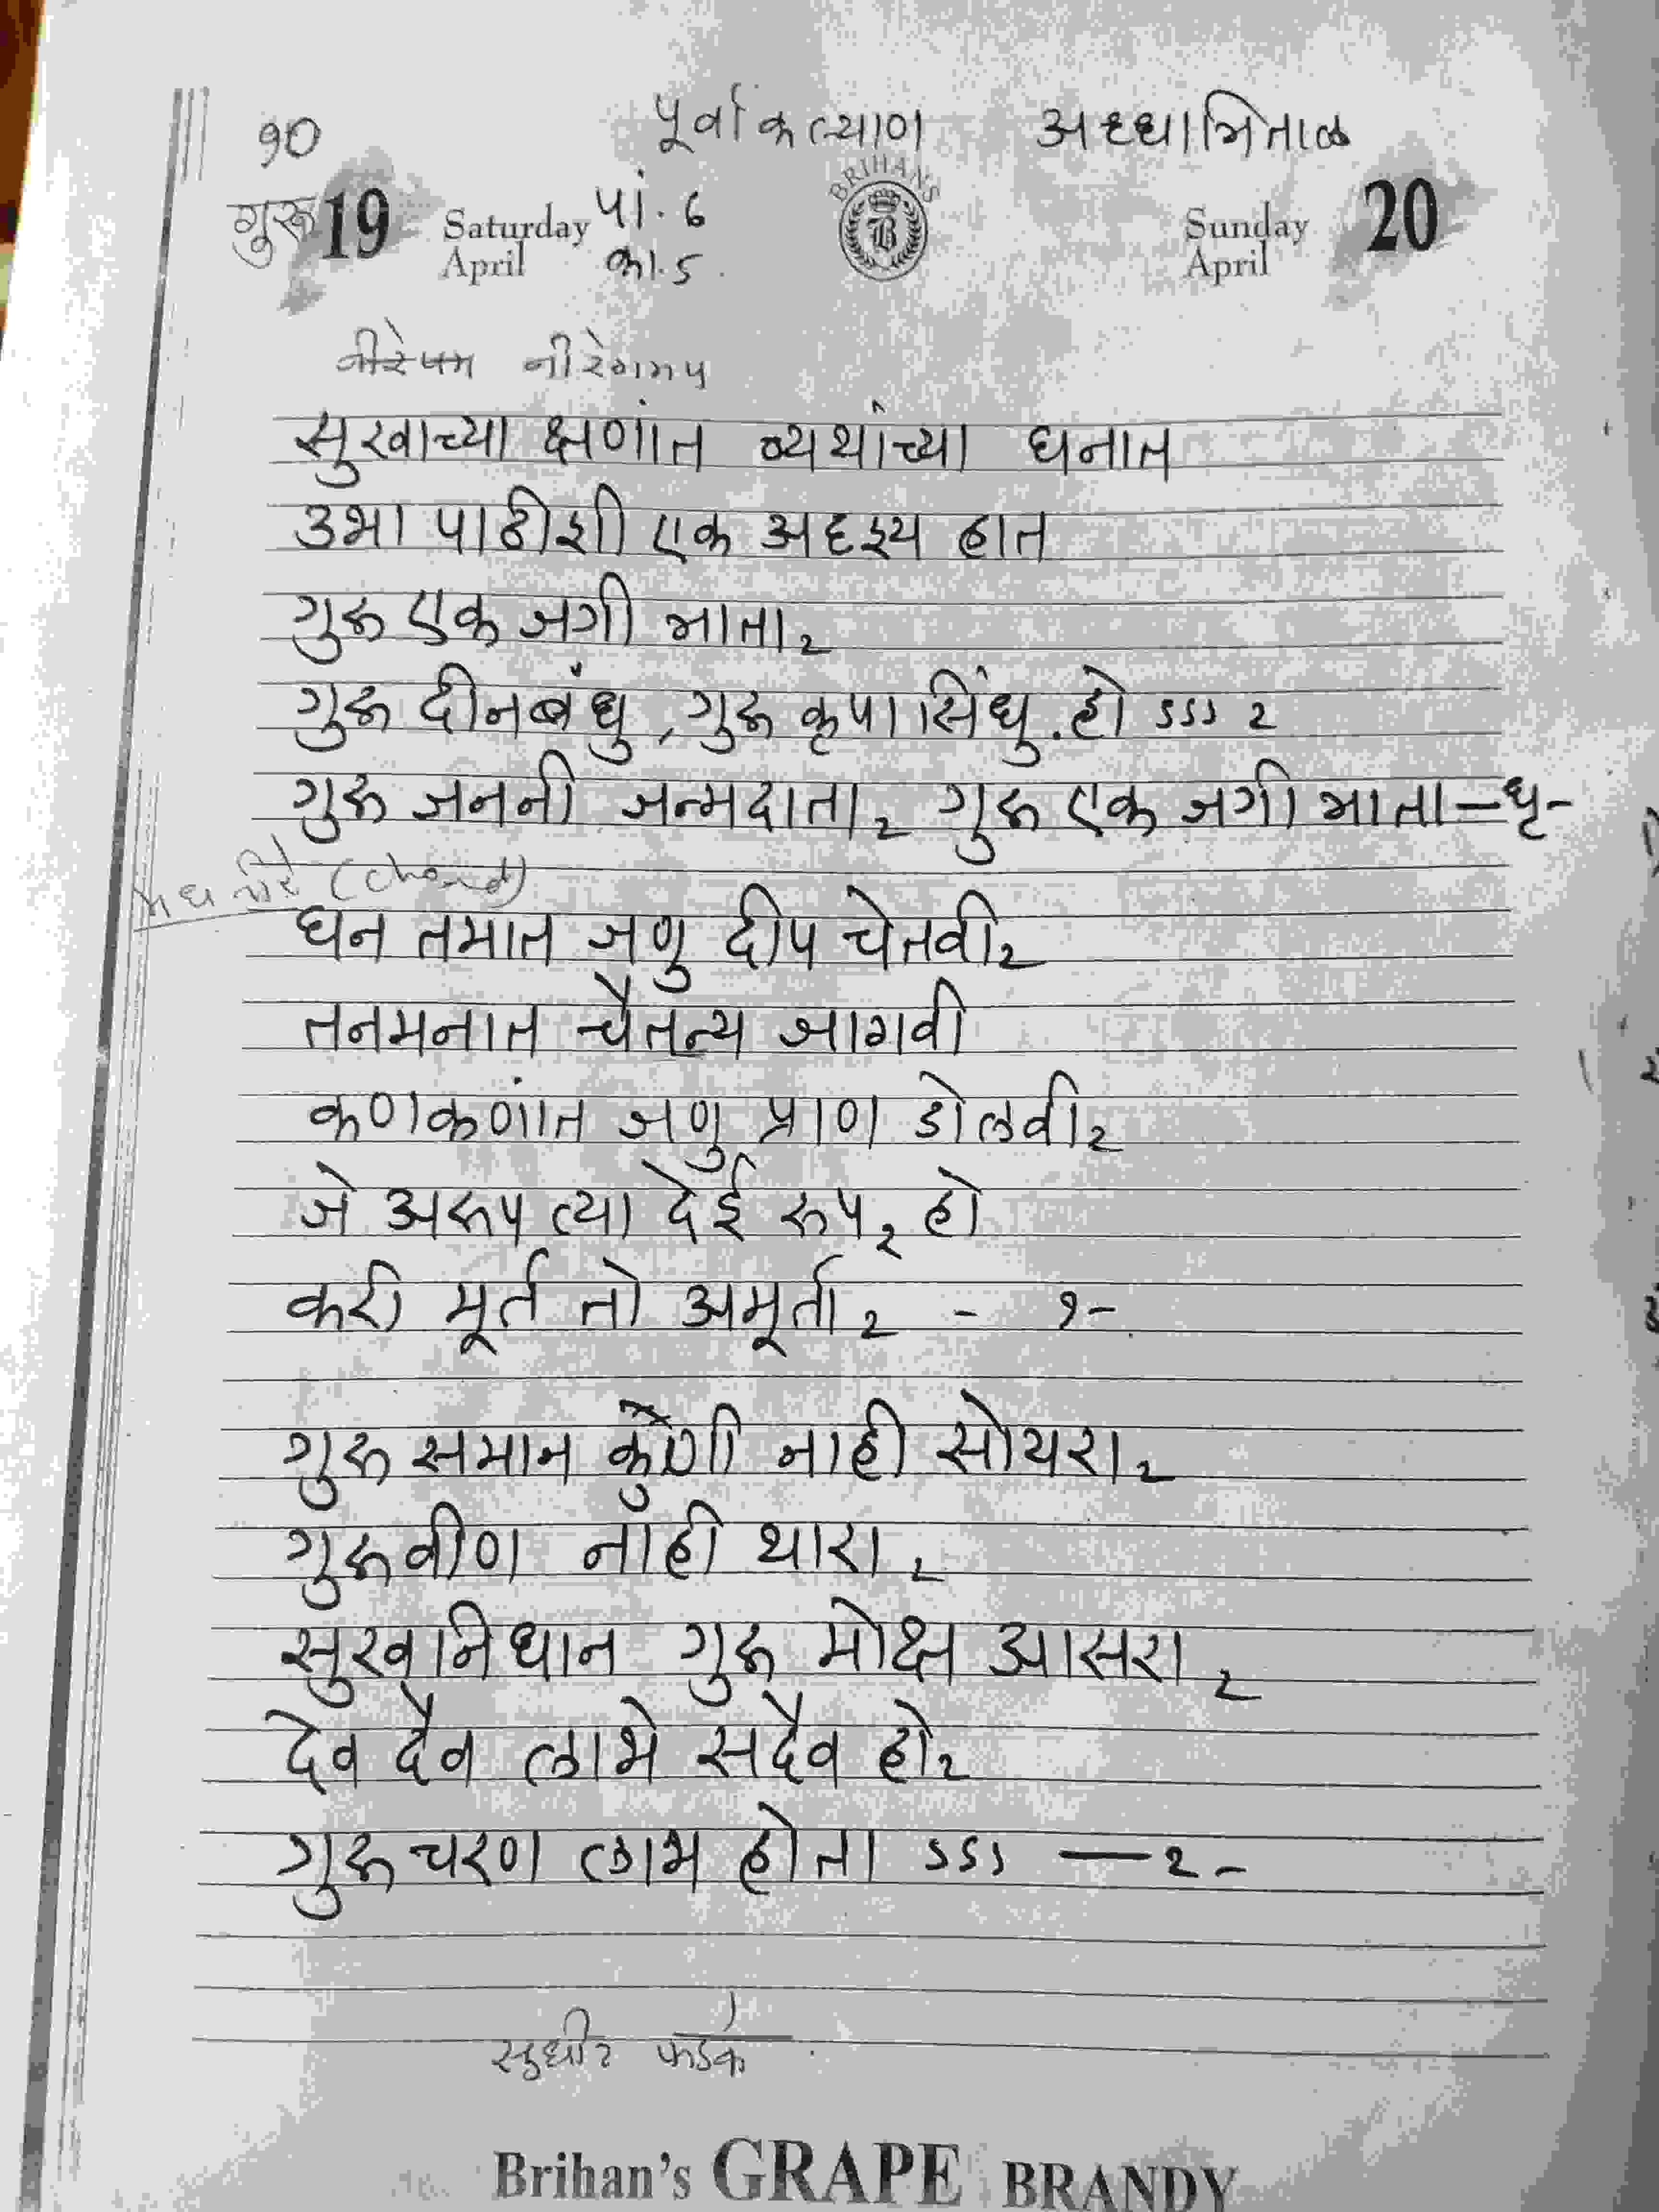 १० पूर्वाकल्याण अध्धा त्रिताळ
गुरू 19 Saturday April पां. ६ BRIHANS B Sunday April 20
का. ५
नीरेगमप
सुखाच्या क्षणांत व्यथांच्या घनात
उभा पाठीशी एक अदृश्य हात
गुरू एक जगी त्राता २
गुरू दीनबंधु, गुरू कृपासिंधु. हो ऽऽऽ २
गुरू जननी जन्मदाता २ गुरू एक जगी त्राता — धृ -
मधनीरे (chord)
घन तमात जणु दीप चेतवी २
तनमनात चैतन्य जागवी
कणकणांत जणु प्राण डोलवी २
जे अरुप त्या देई रुप २ हो
करी मूर्त तो अमूर्ता २ - १ -
गुरू समान कुणी नाही सोयरा २
गुरूवीण नाही थारा २
सुखनिधान गुरू मोक्ष आसरा २
देव दैव लाभे सदैव हो २
गुरू चरण लाभ होता ऽऽऽ — २ -
सुधीर फडके
Brihan's GRAPE BRANDY